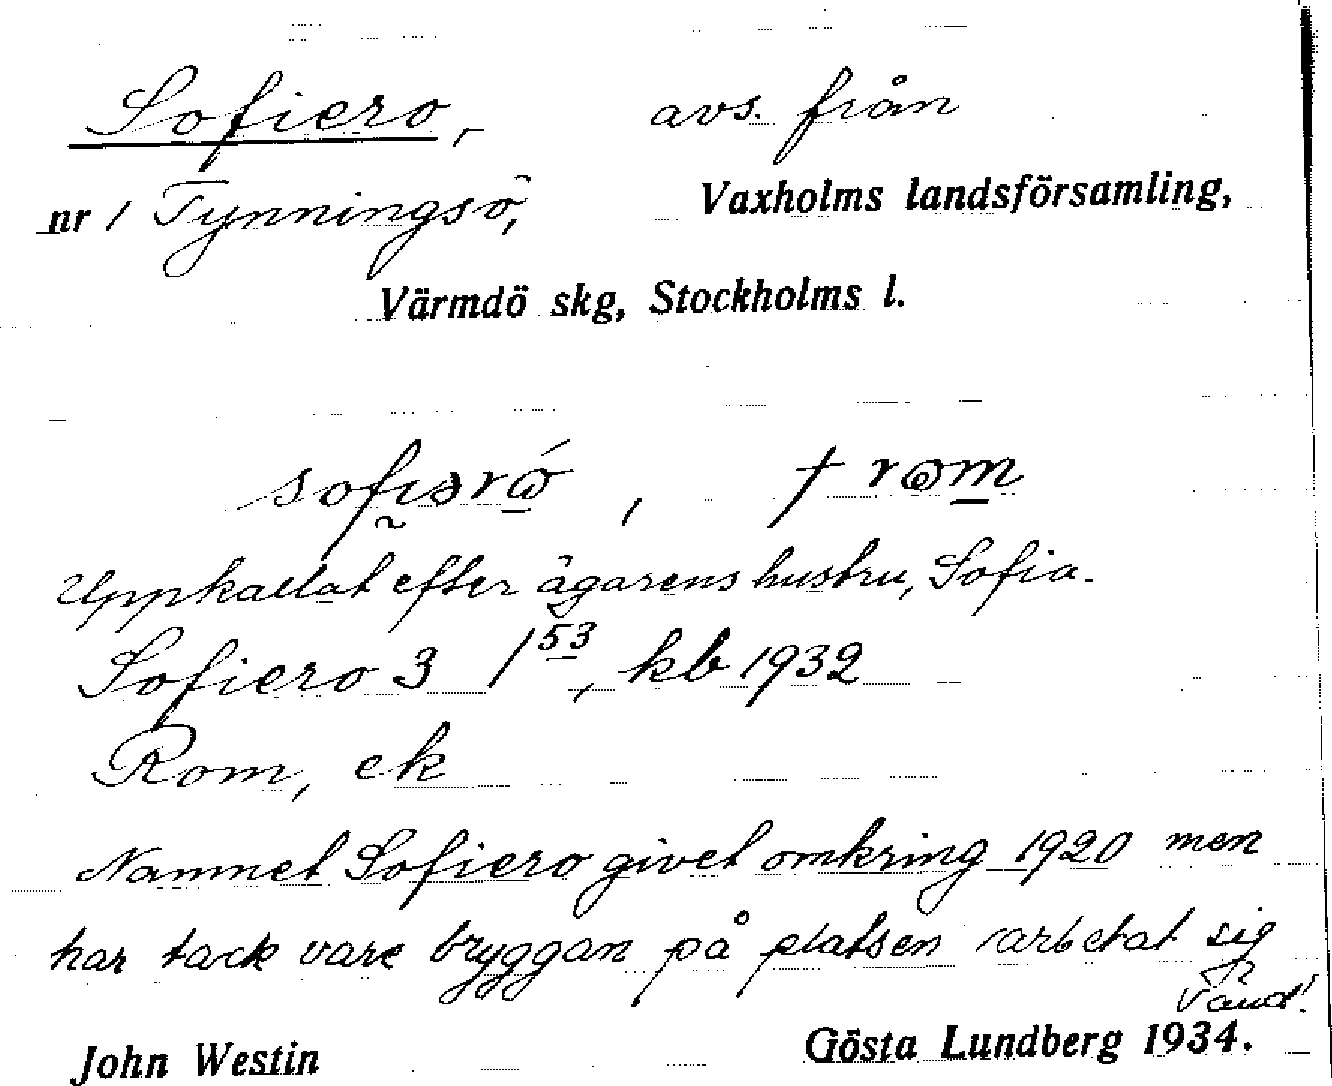 Sofiero, avs. från
nr 1 Tynningsö, Vaxholms landsförsamling,
Värmdö skg, Stockholms l.
Uppkallat efter ägarens hustru, Sofia.
Sofiero 3 1⁵³, kb 1932
Rom, ek
Namnet Sofiero givet omkring 1920 men
har tack vare bryggan på platsen arbetat sig
Vänd!
John Westin Gösta Lundberg 1934.